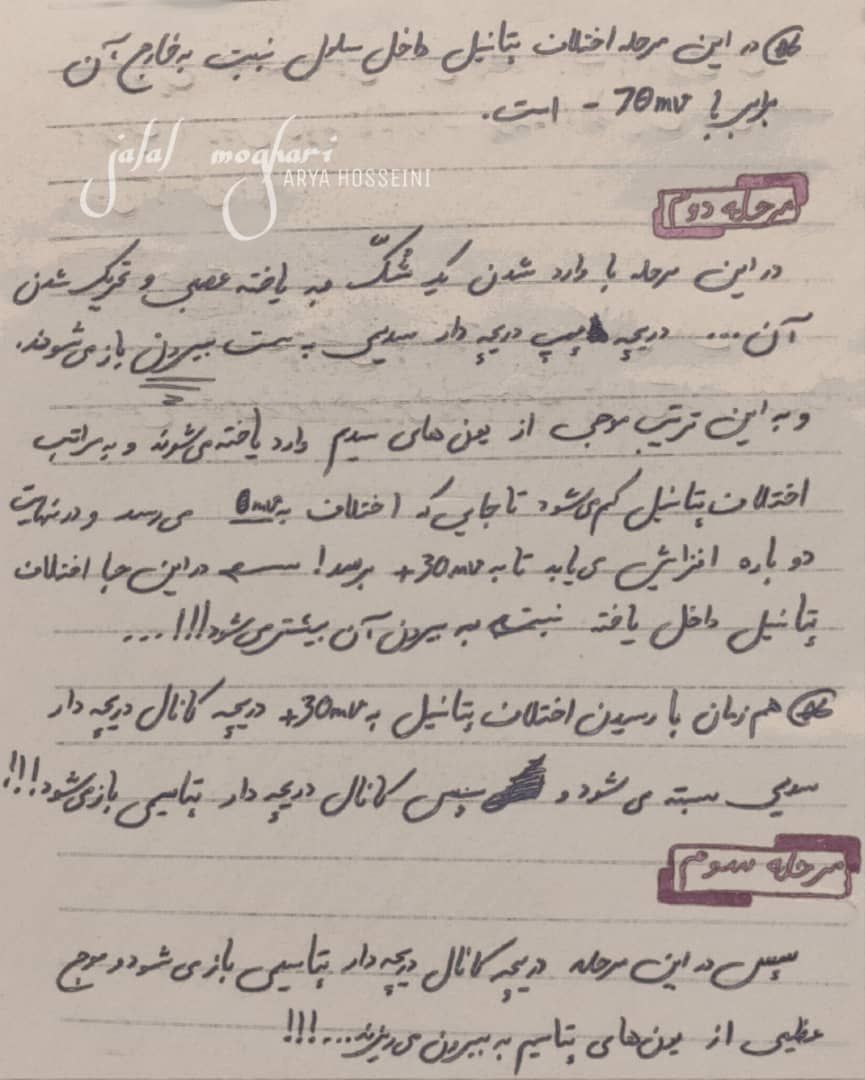 در این مرحله اختلاف پتانیل داخل سلول نسبت به خارج آن
برابر با 70mv - است.
jalal moghari
ARYA HOSSEINI
مرحله دوم
در این مرحله با وارد شدن یک شُکّ به یاخته عصبی و تحریک شدن
آن... دریچه پمپ دریچه دار سدیمی به سمت بیرون باز می‌شوند.
و به این ترتیب موجی از یون های سدیم وارد یاخته می‌شوند و به مراتب
اختلاف پتانیل کم می‌شود تا جایی که اختلاف به 0mv می‌رسد و در نهایت
دوباره افزایش می یابد تا به 30mv+ برسد! در این جا اختلاف
پتانیل داخل یاخته نسبت به بیرون آن بیشتر می‌شود!!!...
هم زمان با رسیدن اختلاف پتانیل به 30mv+ دریچه کانال دریچه دار
سدیمی بسته می شود و سپس کانال دریچه دار پتاسیمی باز می‌شود!!!
مرحله سوم
سپس در این مرحله دریچه کانال دریچه دار پتاسیمی باز می شود و موج
عظیمی از یون‌های پتاسیم به بیرون می‌ریزند...!!!